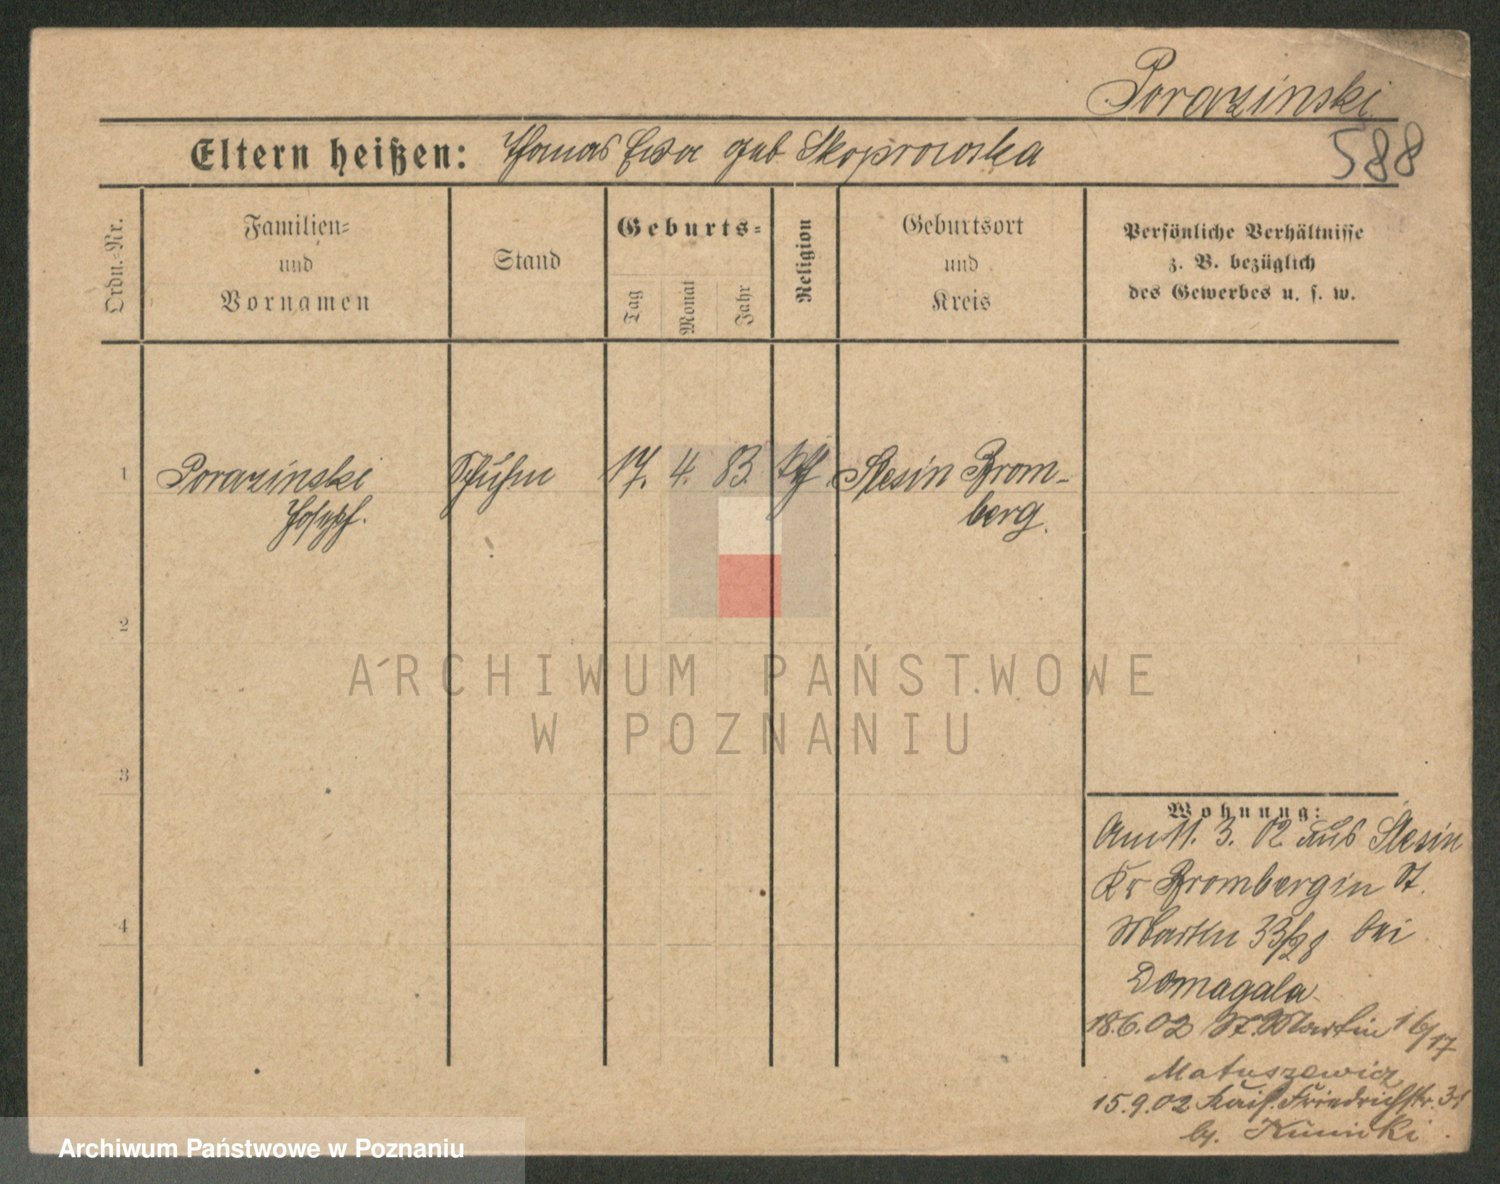 Porazinski
588
Eltern heißen: Thomas Ewa geb Skoprowska
Ordn.-Nr.
Familien-
und
Vornamen
Stand
Geburts-
Tag
Monat
Jahr
Religion
Geburtsort
und
Kreis
Persönliche Verhältnisse
z. B. bezüglich
des Gewerbes u. s. w.
1 Porazinski 17. 4. 83. kth Slesin Brom-
Joseph. berg.
2
3
4
Wohnung:
Am 11. 3. 02 aus Slesin
Kr Bromberg in St.
Martin 33/28 bei
Domagala
18.6.02 St. Martin 16/17
Matuszewicz
15.9.02 Kais. Friedrichstr. 31
by.
ARCHIWUM PAŃSTWOWE
W POZNANIU
Archiwum Państwowe w Poznaniu